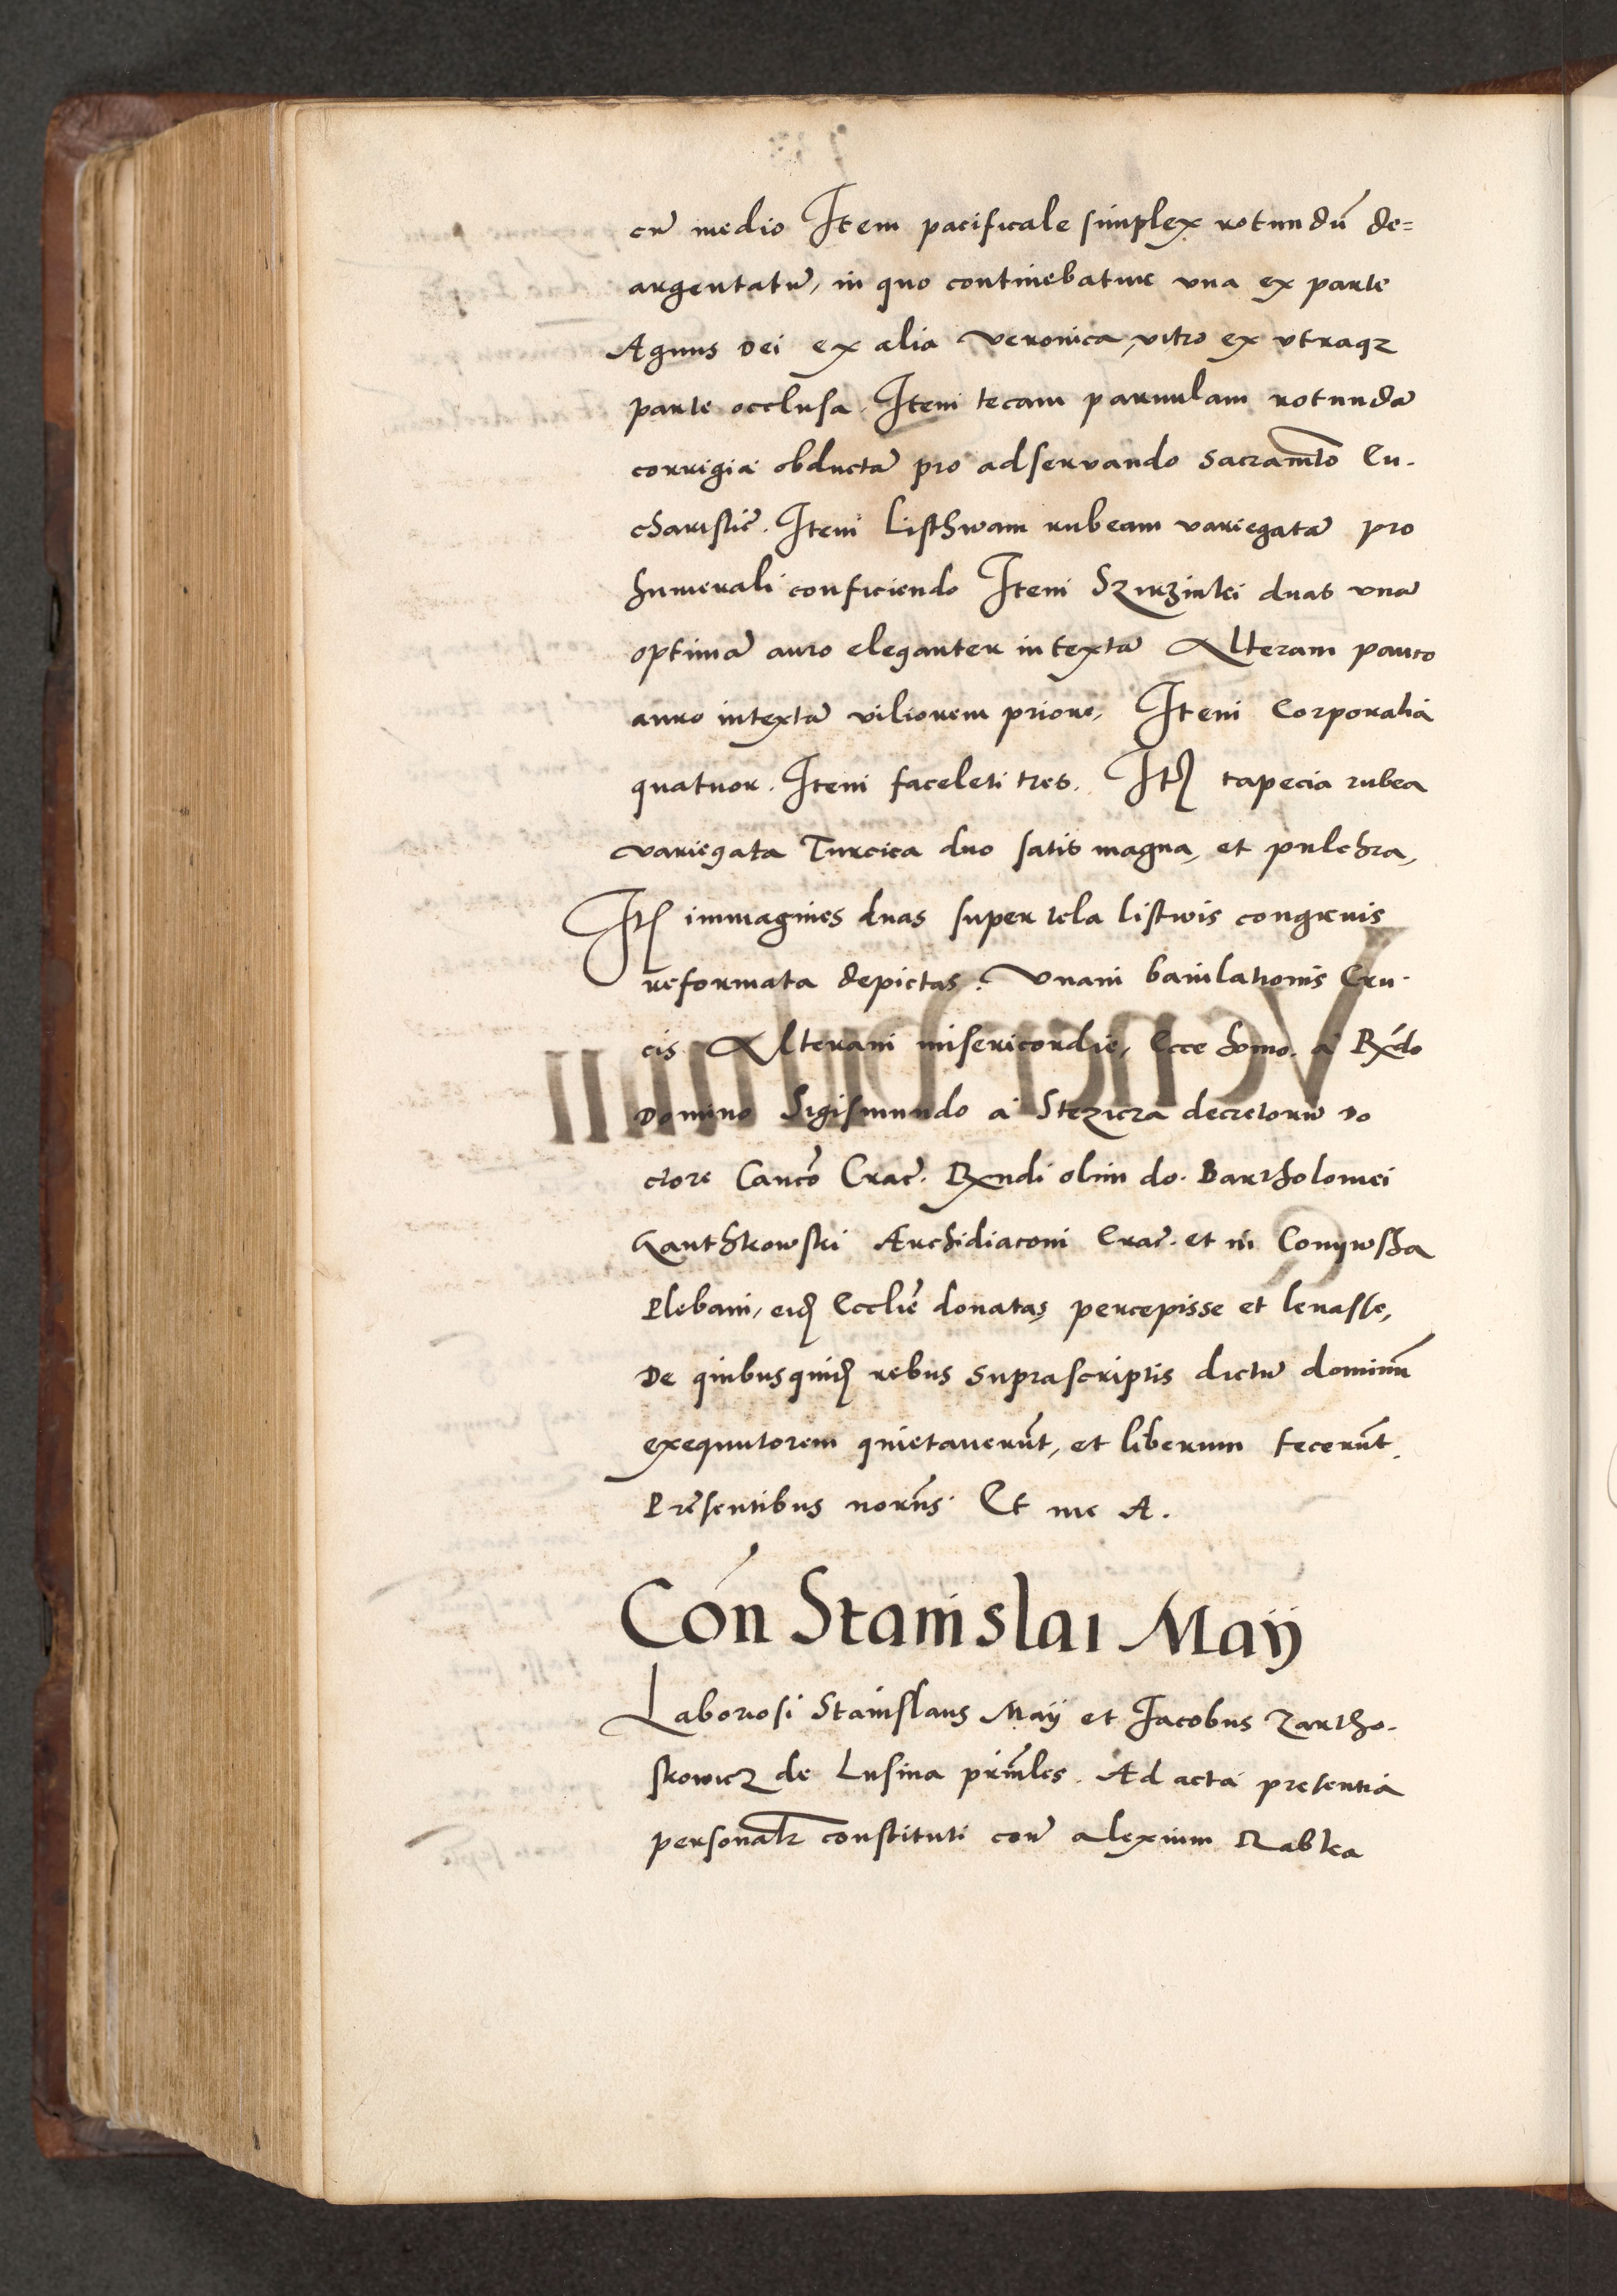 cū medio Item pacificale simplex rotundū de=
argentatū, in quo continebatur vna ex parte
Agnus Dei ex alia veronica, vitro ex vtraqz
parte occlusa. Item tecam paruulam rotundā
corrigia obductā pro adseruando Sacramēto Eu-
charistie. Item Listhwam rubeam variegatā pro
humerali conficiendo Item duas vnā
optimā auro eleganter intextā Alteram pauco
auro intextā viliorem priore, Item Corporalia
quatuor. Item faceleti tres. Itē tapecia rubea
variegata Turcica duo satis magna, et pulchra,
Itē immagines duas super tela listwis congruis
reformata depictas. Vnam baiulationis Cru-
cis Alteram misericordie, Ecce homo. a Rx̄do
Domino Sigismundo a Stezicza decretorū Do
ctore Canco Crac̄. Rx̄ndi olim do. Bartholomei
Ganthkowski Archidiaconi Crac̄. et in Conijwsha
Plebani, eidē Ecclīe donatas percepisse et leuasse,
De quibusquidē rebus suprascriptis dictū dominū
exequutorem quietauerūt, et liberum fecerūt.
Presentibus norūs. Et me A.
Cōn Stanislai Maij
Laboriosi Stanislaus Maij et Jacobus Zartho-
skowicz de Lusina prīnles. Ad acta presentia
personalr constituti corā alexium Rabka